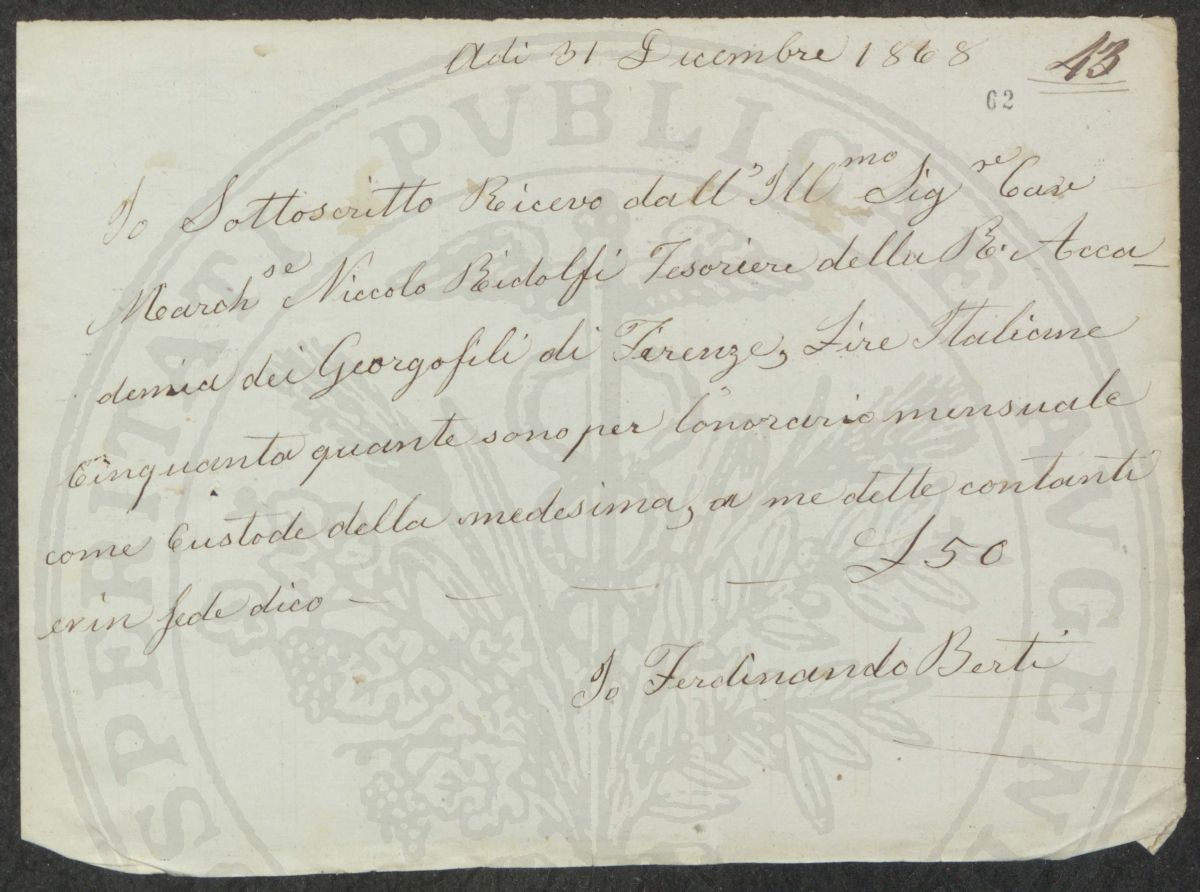 Adi 31 Dicembre 1868
43
62
Io Sottoscritto Ricevo dall'Ill.mo Sig.re Cav
March.se Niccolo Ridolfi Tesoriere della R. Acca_
demia dei Georgofili di Firenze, Lire Italiane
Cinquanta quante sono per l'onorario mensuale
come Custode della medesima, a me dette contanti
ed in fede dico — — — — £ 50
Io Ferdinando Berti
PROSPERITATI PUBLICAE AUGENDAE